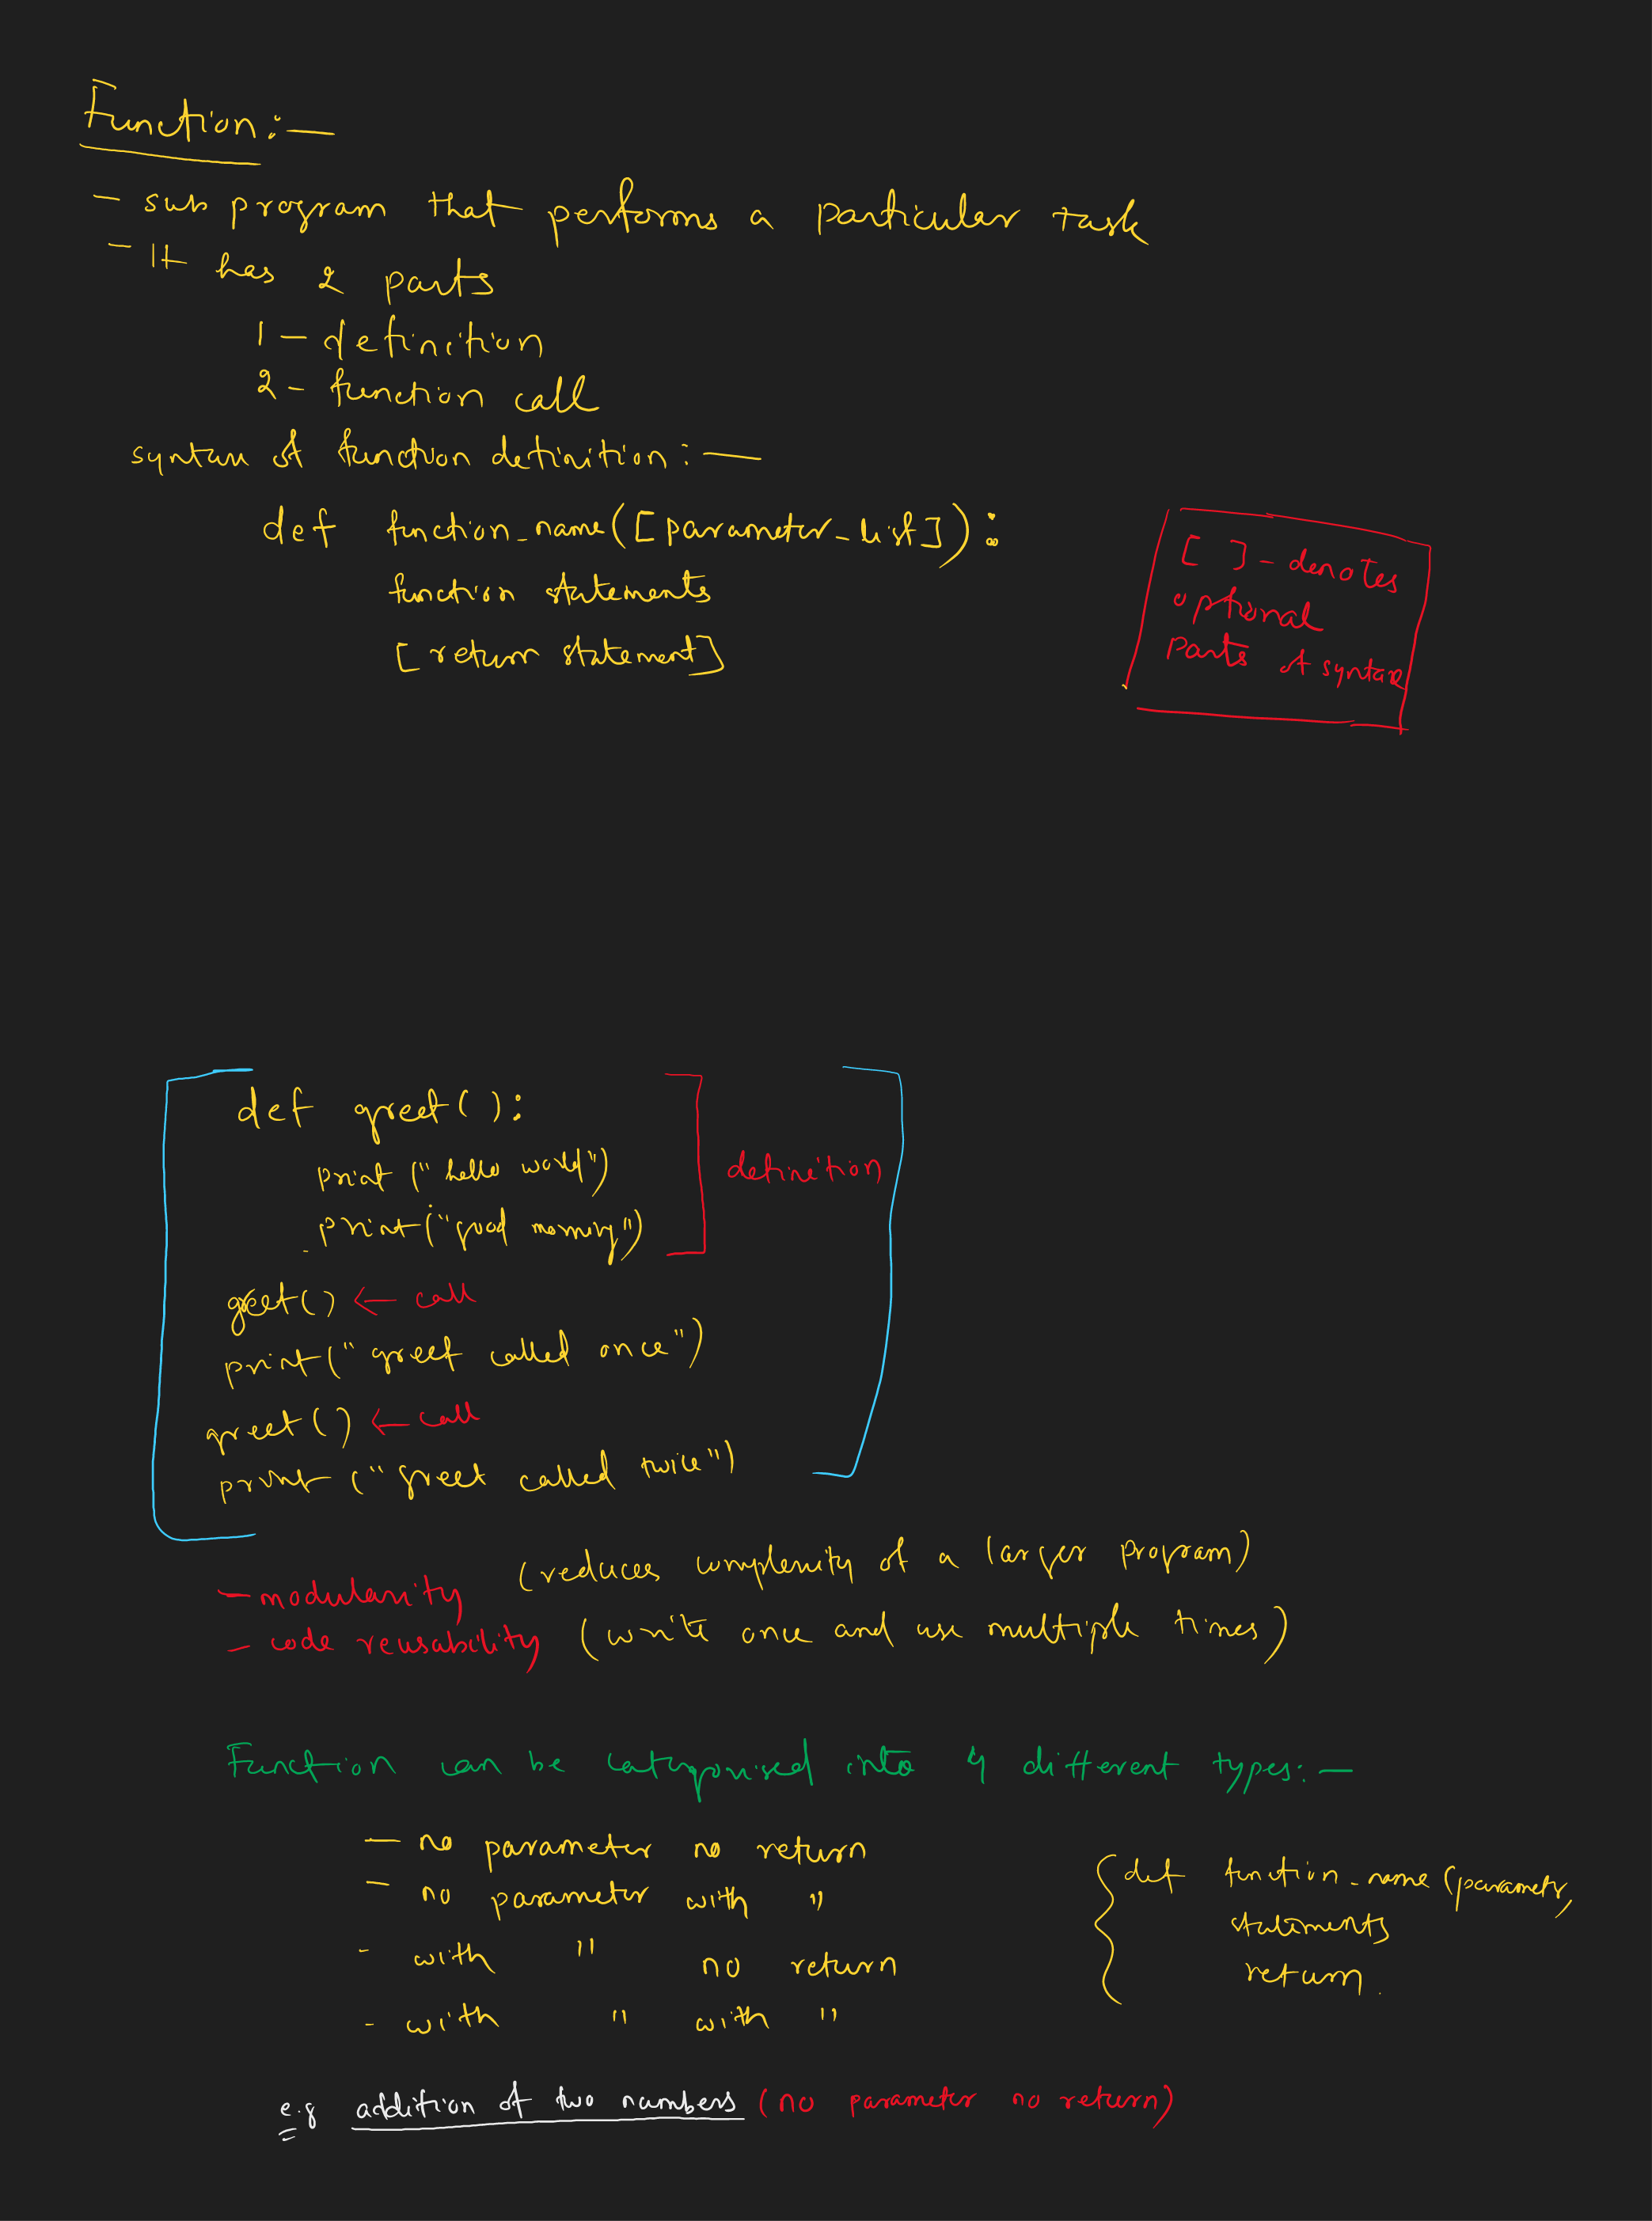 Function:-
- sub program that performs a particular task
- It has 2 parts
1 - definition
2 - function call
syntax of function definition:-
def function_name([parameter_list]):
function statements
[return statement]
[ ] - denotes
optional
parts of syntax
def greet():
print ("hello world")
print("good morning")
definition
greet() ← call
print("greet called once")
greet() ← call
print ("greet called twice")
- modularity (reduces complexity of a larger program)
- code reusability (write once and use multiple times)
Function can be categorised into 4 different types:-
- no parameter no return
- no parameter with "
- with " no return
- with " with "
def function_name(parameter,
statements
return.
e.g addition of two numbers (no parameter no return)